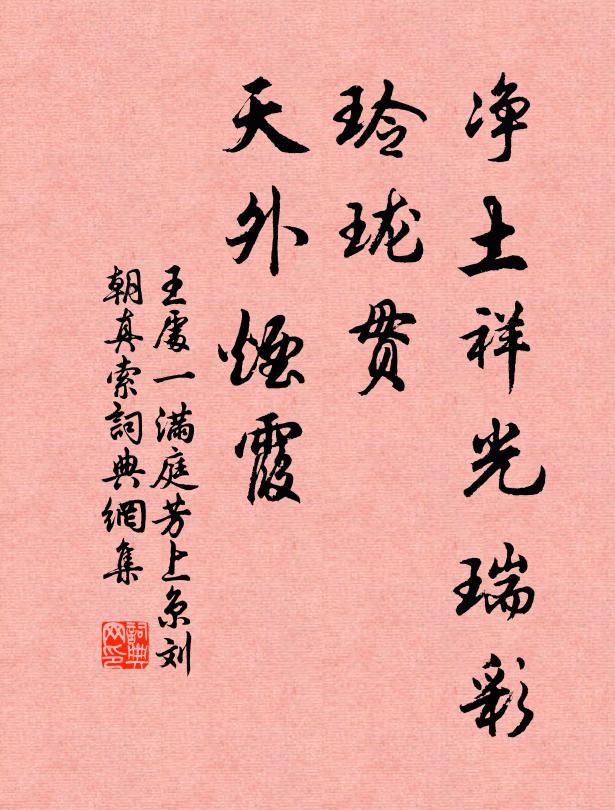 净土祥光瑞彩
玲珑贯
天外煙霞
王處一满庭芳上京刘
朝真索詞典網集
詞典网印